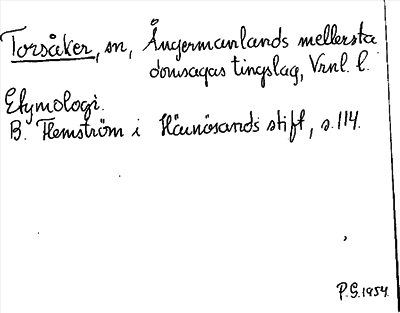 Torsåker, sn, Ångermanlands mellersta
domsagas tingslag, Vrnl. l.
Etymologi.
B. Flemström i Härnösands stift, s. 114.
P.G. 1954.